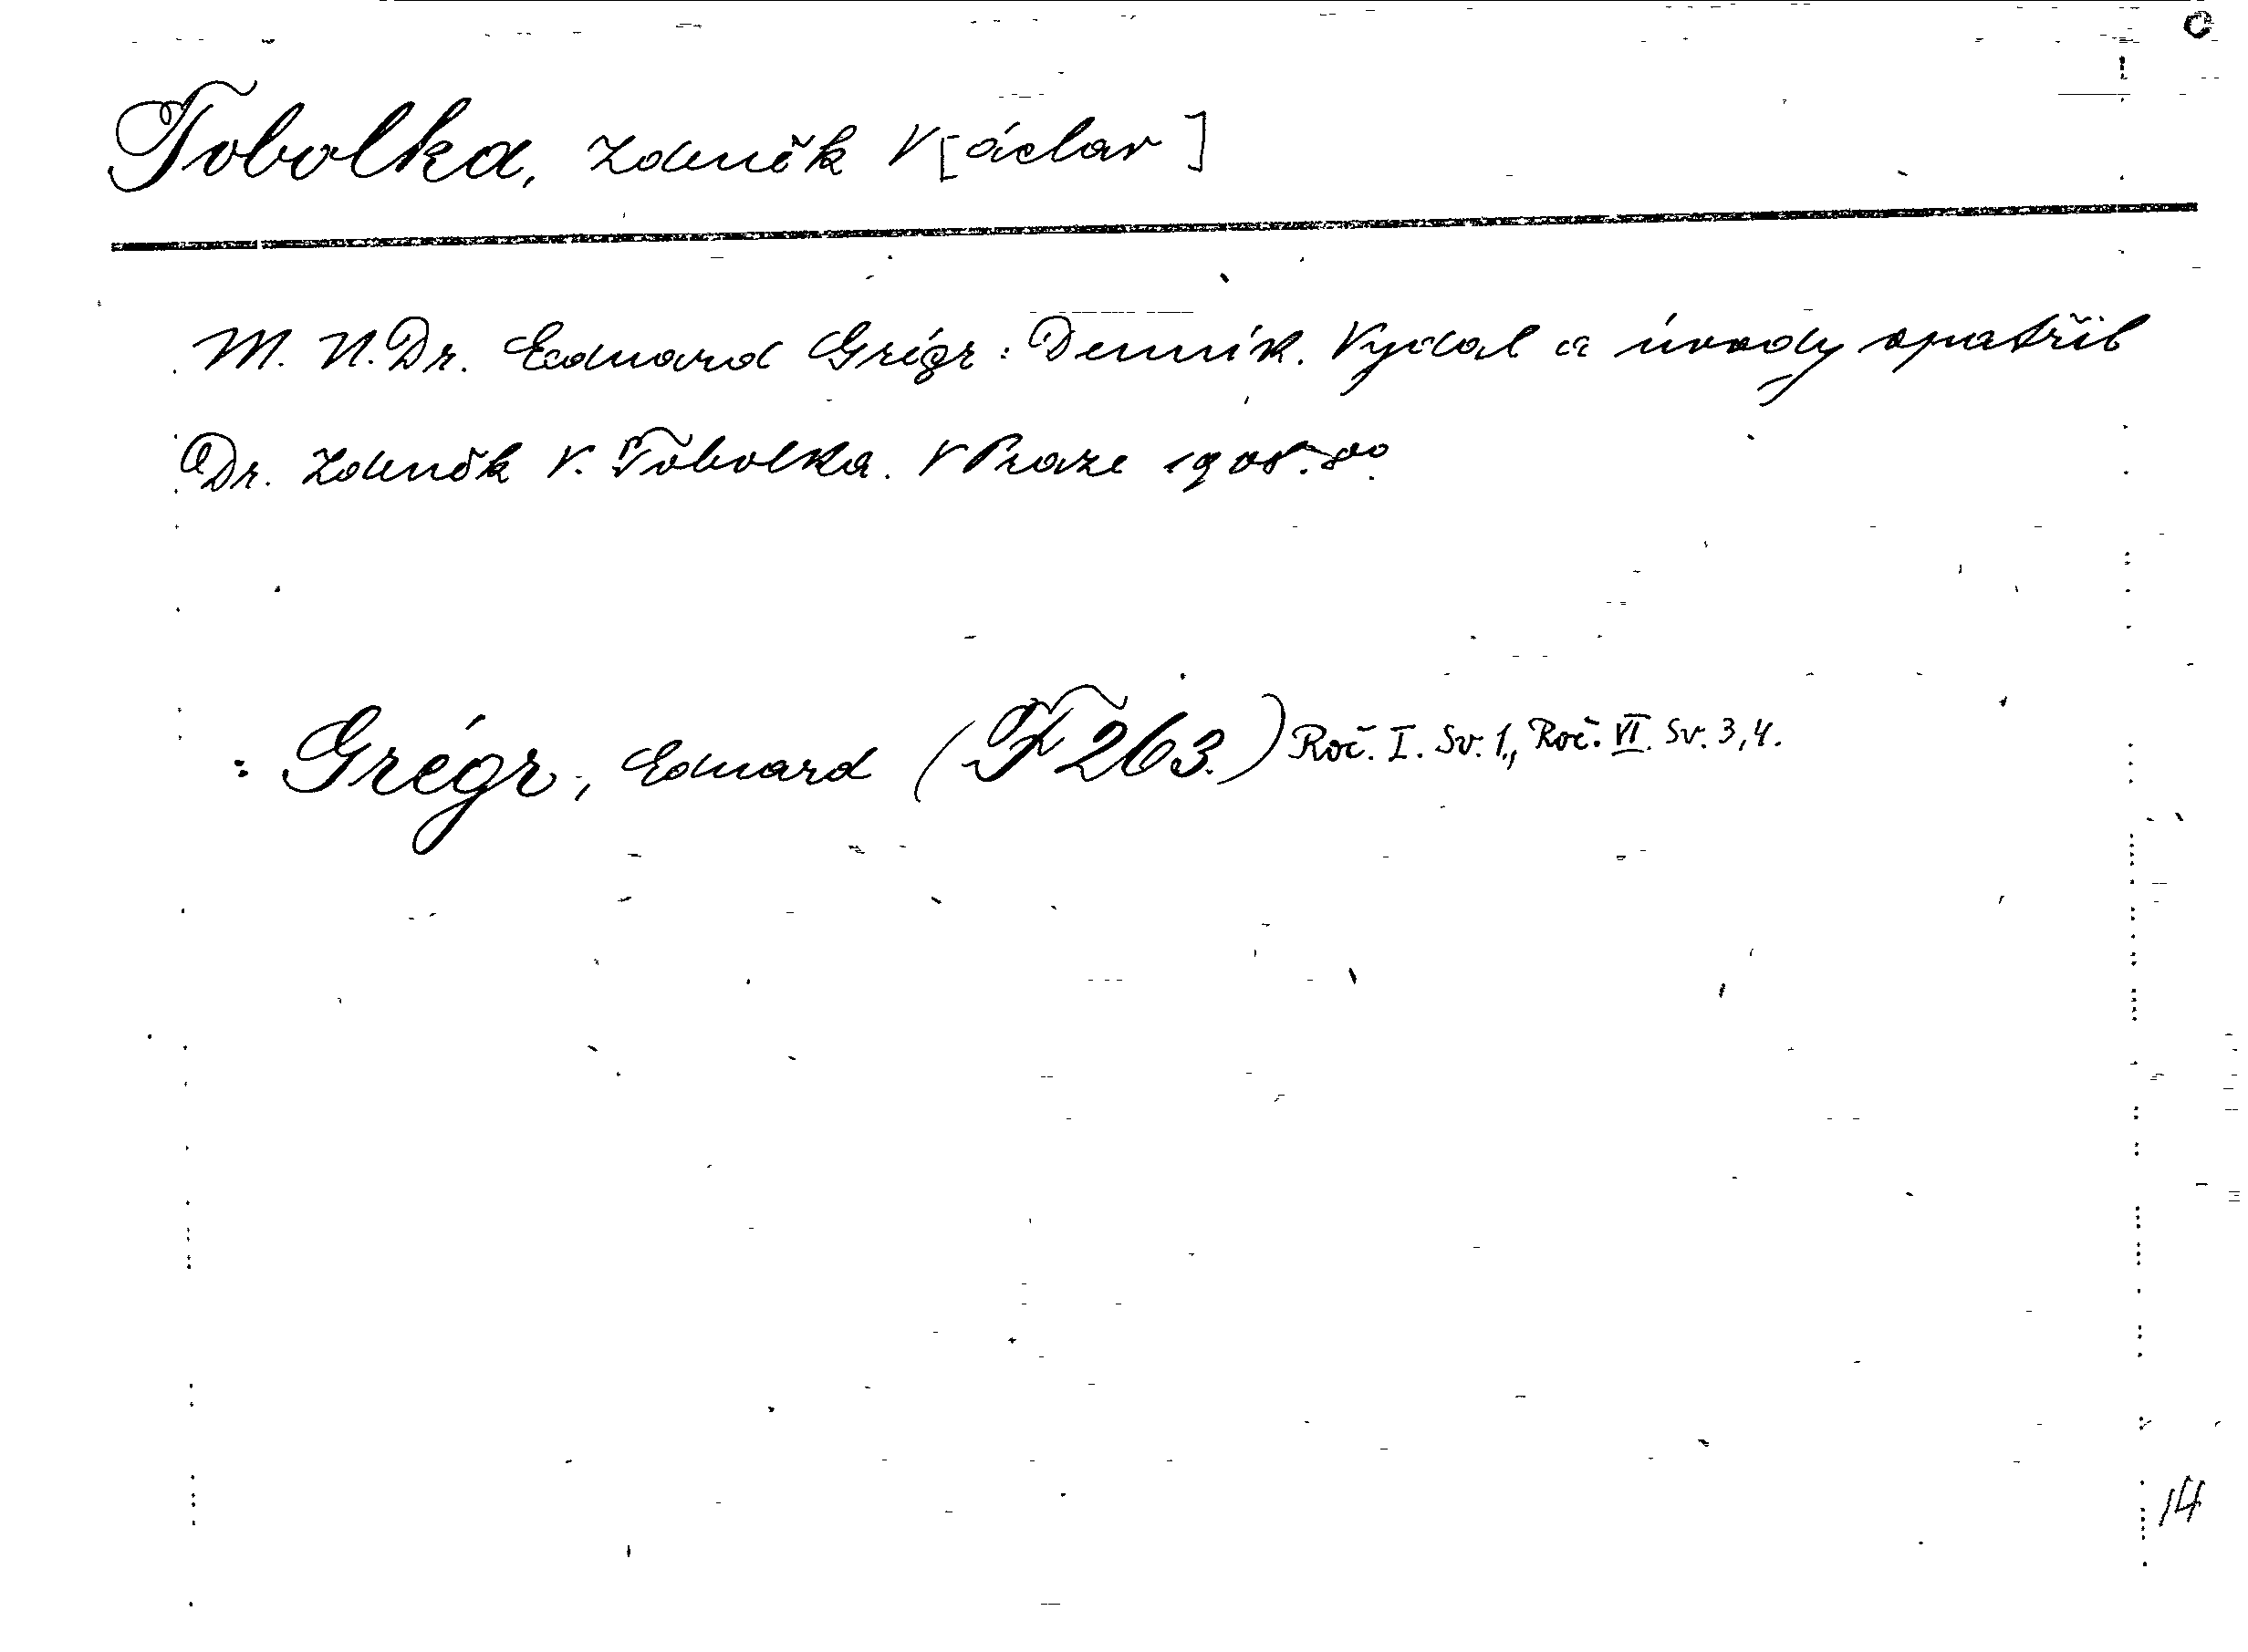 Tobolka, Zdeněk V[áclav]
M. U. Dr. Eduard Grégr: Denník. Vydal a úvody opatřil
Dr. Zdeněk V. Tobolka. V Praze 1908. 8°.
: Grégr, Eduard (F 263.) Roč. I. Sv. 1., Roč. VI. Sv. 3, 4.
14